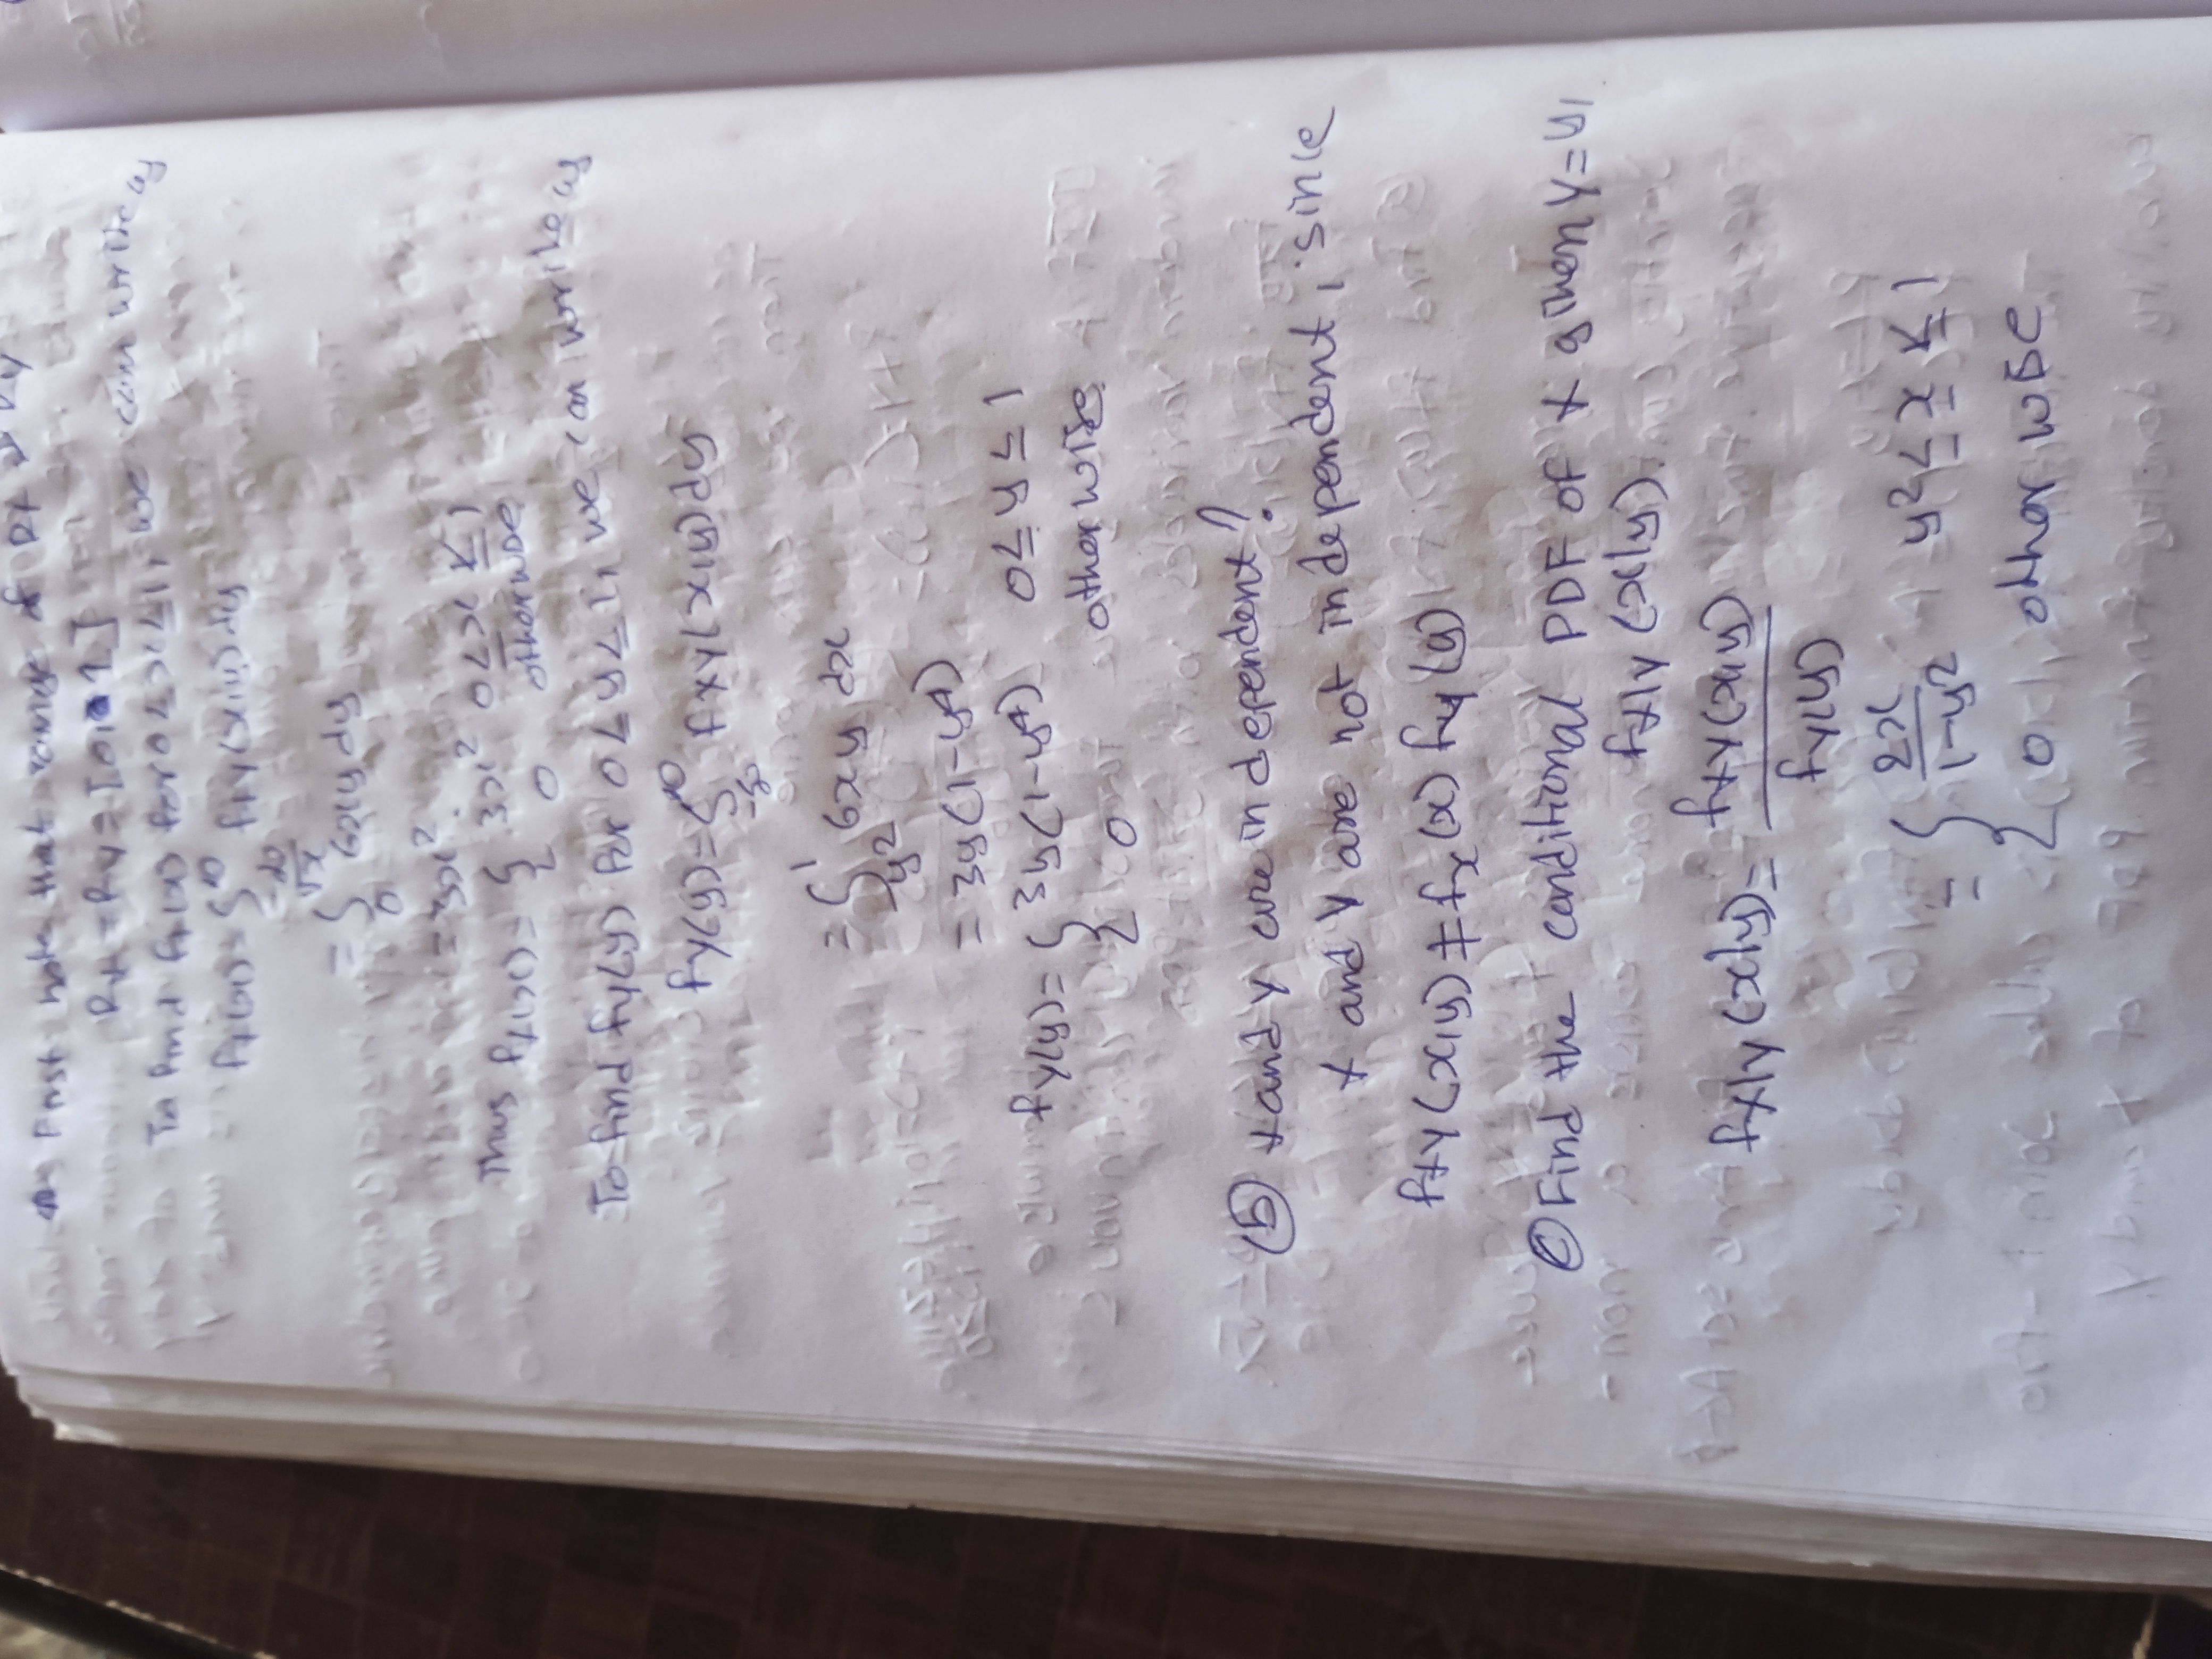 First note that range of
Rx = Ry = [0,1]
To find fx(x) for 0 ≤ x ≤ 1, we can write
fx(x) = ∫_{-∞}^{∞} fxy(x,y) dy
= ∫_0^{√x} 6xy dy
= 3x²
Thus fx(x) = { 3x² 0 ≤ x ≤ 1
0 otherwise
To find fy(y) for 0 ≤ y ≤ 1, we can write
fy(y) = ∫_{-∞}^{∞} fxy(x,y) dy
= ∫_{y²}^1 6xy dx
= 3y(1-y⁴)
fy(y) = { 3y(1-y⁴) 0 ≤ y ≤ 1
0 otherwise
(b) x and y are independent?
x and y are not independent, since
fxy(x,y) ≠ fx(x) fy(y)
(c) Find the conditional PDF of x given y = y,
fx|y (x|y).
fx|y(x|y) = fxy(x,y) / fy(y)
= { 2x/1-y² y² ≤ x ≤ 1
0 otherwise